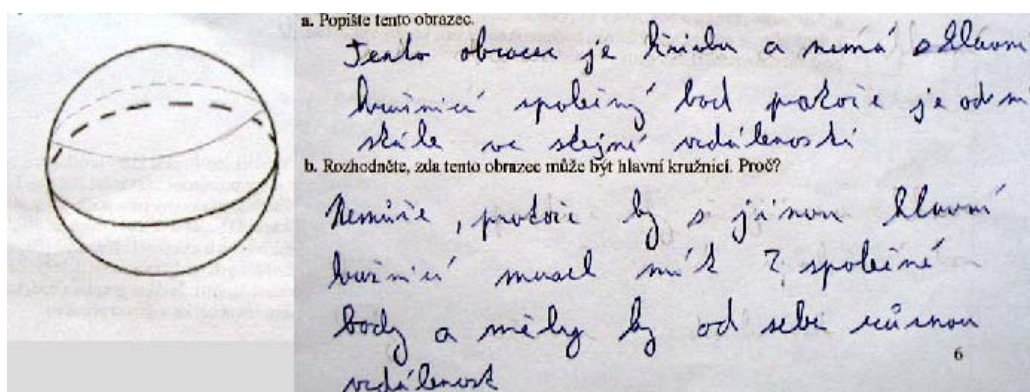 a. Popište tento obrazec.
Tento obrazec je kružnice a nemá s hlavní
kružnicí společný bod protože je od ní
stále ve stejné vzdálenosti
b. Rozhodněte, zda tento obrazec může být hlavní kružnicí. Proč?
Nemůže, protože by s jinou hlavní
kružnicí musel mít 2 společné
body a měly by od sebe různou
vzdálenost
6